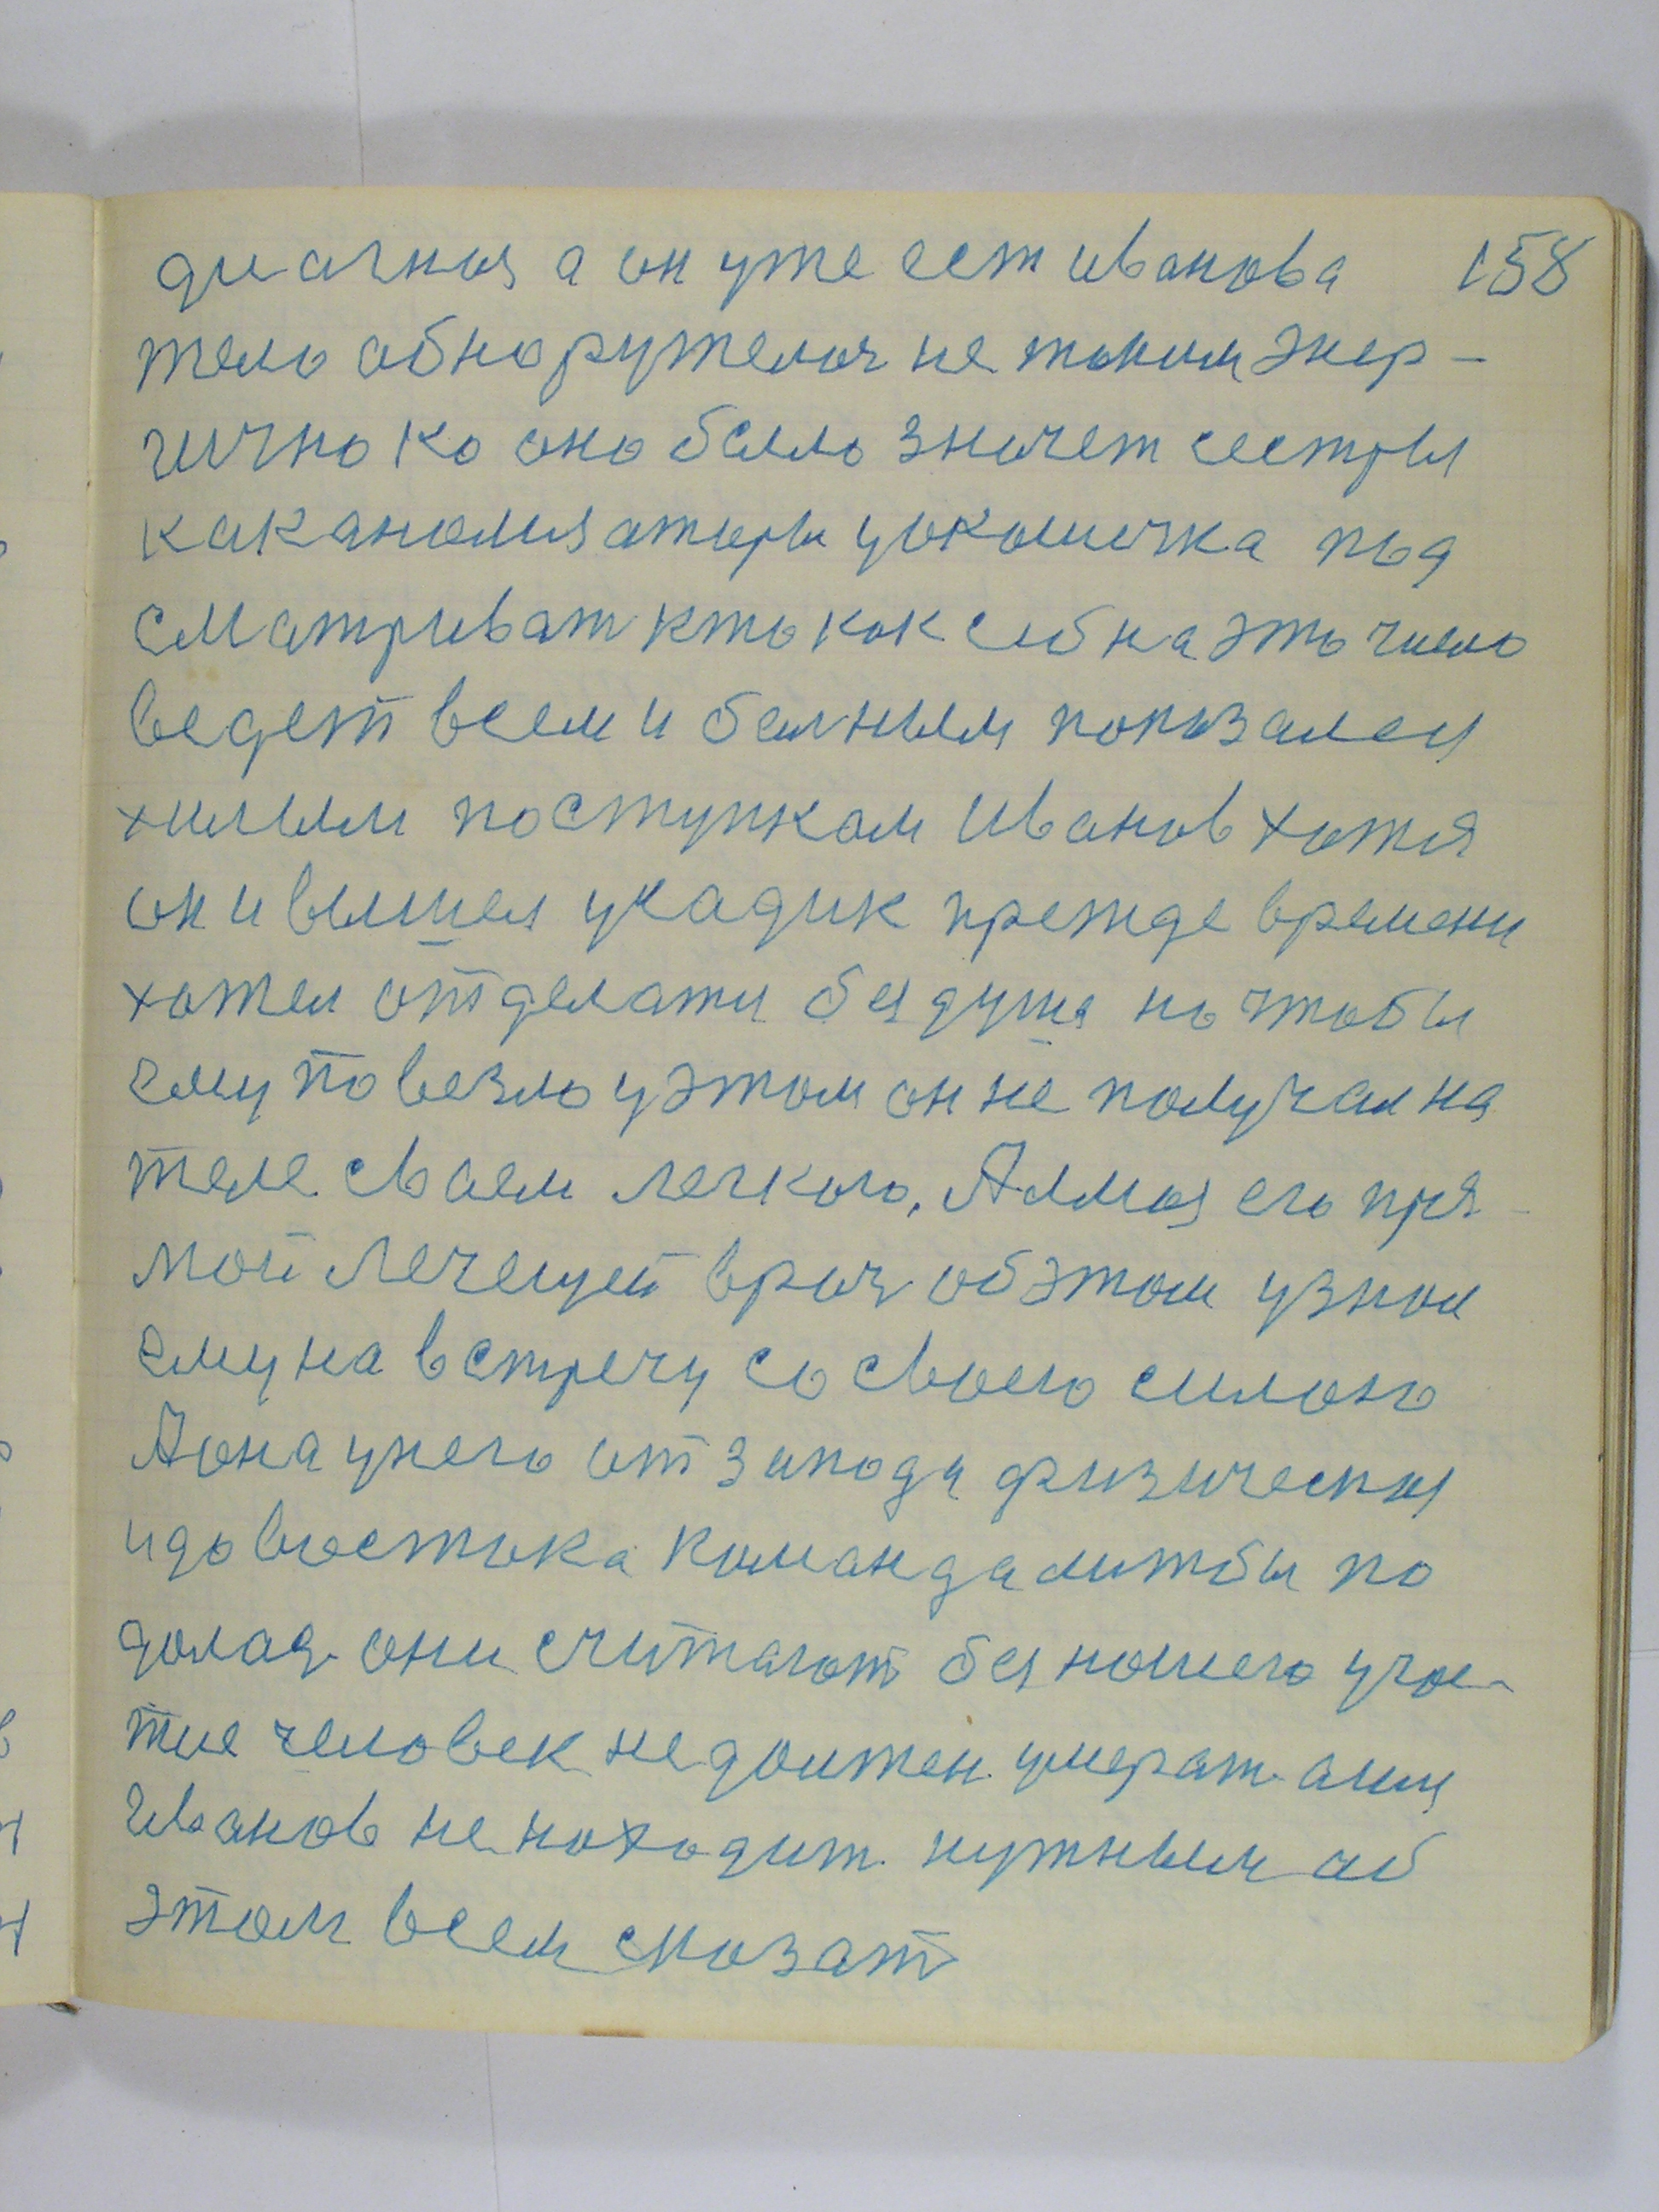 диагноз а он уже ест иванова 158
тело обнаружелог не таким энер-
гично ко оно было значет сестры
как анализаторы уокошичка под
сматриват кто как себ на это число
ведет всем и болным показалси
хилым поступком Иванов хотя
он и вышел у садик прежде времени
хотел отделати без душа но чтобы
ему повезло у этом он не получал на
теле своем легкого, Алмоз его пря-
мой лечещей врач об этом узнал
ему на встречу со своею силою
А она у него от запода физическая
и до востока командалитбы по
долаг они считают без нашего учас-
тие человек не должен умерат а им
Иванов не находит нужным об
этом всем сказат